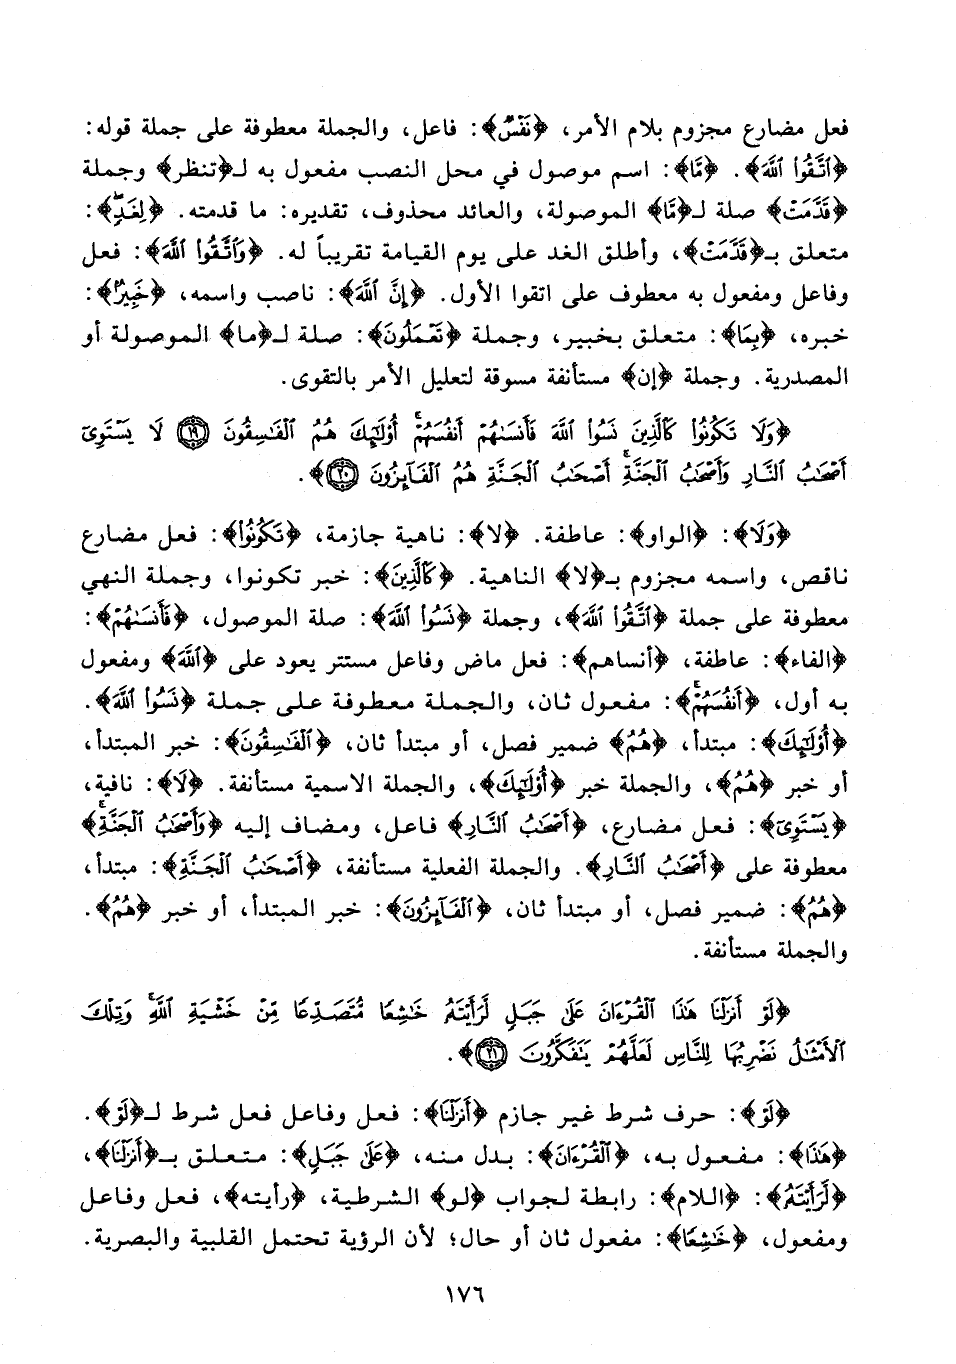 فعل مضارع مجزوم بلام الأمر، ﴿نَفْسٌ﴾: فاعل، والجملة معطوفة على جملة قوله:
﴿ٱتَّقُوا۟ ٱللَّهَ﴾. ﴿مَّا﴾: اسم موصول في محل النصب مفعول به لـ﴿تنظر﴾ وجملة
﴿قَدَّمَتْ﴾ صلة لـ﴿مَّا﴾ الموصولة، والعائد محذوف، تقديره: ما قدمته. ﴿لِغَدٍۖ﴾:
متعلق بـ﴿قَدَّمَتْ﴾، وأطلق الغد على يوم القيامة تقريباً له. ﴿وَٱتَّقُوا۟ ٱللَّهَ﴾: فعل
وفاعل ومفعول به معطوف على اتقوا الأول. ﴿إِنَّ ٱللَّهَ﴾: ناصب واسمه، ﴿خَبِيرٌۢ﴾:
خبره، ﴿بِمَا﴾: متعلق بخبير، وجملة ﴿تَعْمَلُونَ﴾: صلة لـ﴿ما﴾ الموصولة أو
المصدرية. وجملة ﴿إن﴾ مستأنفة مسوقة لتعليل الأمر بالتقوى.
﴿وَلَا تَكُونُوا۟ كَٱلَّذِينَ نَسُوا۟ ٱللَّهَ فَأَنسَىٰهُمْ أَنفُسَهُمْۚ أُو۟لَٰٓئِكَ هُمُ ٱلْفَٰسِقُونَ ١٩ لَا يَسْتَوِىٓ
أَصْحَٰبُ ٱلنَّارِ وَأَصْحَٰبُ ٱلْجَنَّةِۚ أَصْحَٰبُ ٱلْجَنَّةِ هُمُ ٱلْفَآئِزُونَ ٢٠﴾.
﴿وَلَا﴾: ﴿الواو﴾: عاطفة. ﴿لا﴾: ناهية جازمة، ﴿تَكُونُوا۟﴾: فعل مضارع
ناقص، واسمه مجزوم بـ﴿لا﴾ الناهية. ﴿كَٱلَّذِينَ﴾: خبر تكونوا، وجملة النهي
معطوفة على جملة ﴿ٱتَّقُوا۟ ٱللَّهَ﴾، وجملة ﴿نَسُوا۟ ٱللَّهَ﴾: صلة الموصول، ﴿فَأَنسَىٰهُمْ﴾:
﴿الفاء﴾: عاطفة، ﴿أنساهم﴾: فعل ماض وفاعل مستتر يعود على ﴿ٱللَّهَ﴾ ومفعول
به أول، ﴿أَنفُسَهُمْۚ﴾: مفعول ثان، والجملة معطوفة على جملة ﴿نَسُوا۟ ٱللَّهَ﴾.
﴿أُو۟لَٰٓئِكَ﴾: مبتدأ، ﴿هُمُ﴾ ضمير فصل، أو مبتدأ ثان، ﴿ٱلْفَٰسِقُونَ﴾: خبر المبتدأ،
أو خبر ﴿هُمُ﴾، والجملة خبر ﴿أُو۟لَٰٓئِكَ﴾، والجملة الاسمية مستأنفة. ﴿لَا﴾: نافية،
﴿يَسْتَوِىٓ﴾: فعل مضارع، ﴿أَصْحَٰبُ ٱلنَّارِ﴾ فاعل، ومضاف إليه ﴿وَأَصْحَٰبُ ٱلْجَنَّةِۚ﴾
معطوفة على ﴿أَصْحَٰبُ ٱلنَّارِ﴾. والجملة الفعلية مستأنفة، ﴿أَصْحَٰبُ ٱلْجَنَّةِ﴾: مبتدأ،
﴿هُمُ﴾: ضمير فصل، أو مبتدأ ثان، ﴿ٱلْفَآئِزُونَ﴾: خبر المبتدأ، أو خبر ﴿هُمُ﴾.
والجملة مستأنفة.
﴿لَوْ أَنزَلْنَا هَٰذَا ٱلْقُرْءَانَ عَلَىٰ جَبَلٍ لَّرَأَيْتَهُۥ خَٰشِعًا مُّتَصَدِّعًا مِّنْ خَشْيَةِ ٱللَّهِۚ وَتِلْكَ
ٱلْأَمْثَٰلُ نَضْرِبُهَا لِلنَّاسِ لَعَلَّهُمْ يَتَفَكَّرُونَ ٢١﴾.
﴿لَوْ﴾: حرف شرط غير جازم ﴿أَنزَلْنَا﴾: فعل وفاعل فعل شرط لـ﴿لَوْ﴾.
﴿هَٰذَا﴾: مفعول به، ﴿ٱلْقُرْءَانَ﴾: بدل منه، ﴿عَلَىٰ جَبَلٍ﴾: متعلق بـ﴿أَنزَلْنَا﴾،
﴿لَّرَأَيْتَهُۥ﴾: ﴿اللام﴾: رابطة لجواب ﴿لو﴾ الشرطية، ﴿رأيته﴾، فعل وفاعل
ومفعول، ﴿خَٰشِعًا﴾: مفعول ثان أو حال؛ لأن الرؤية تحتمل القلبية والبصرية.
١٧٦